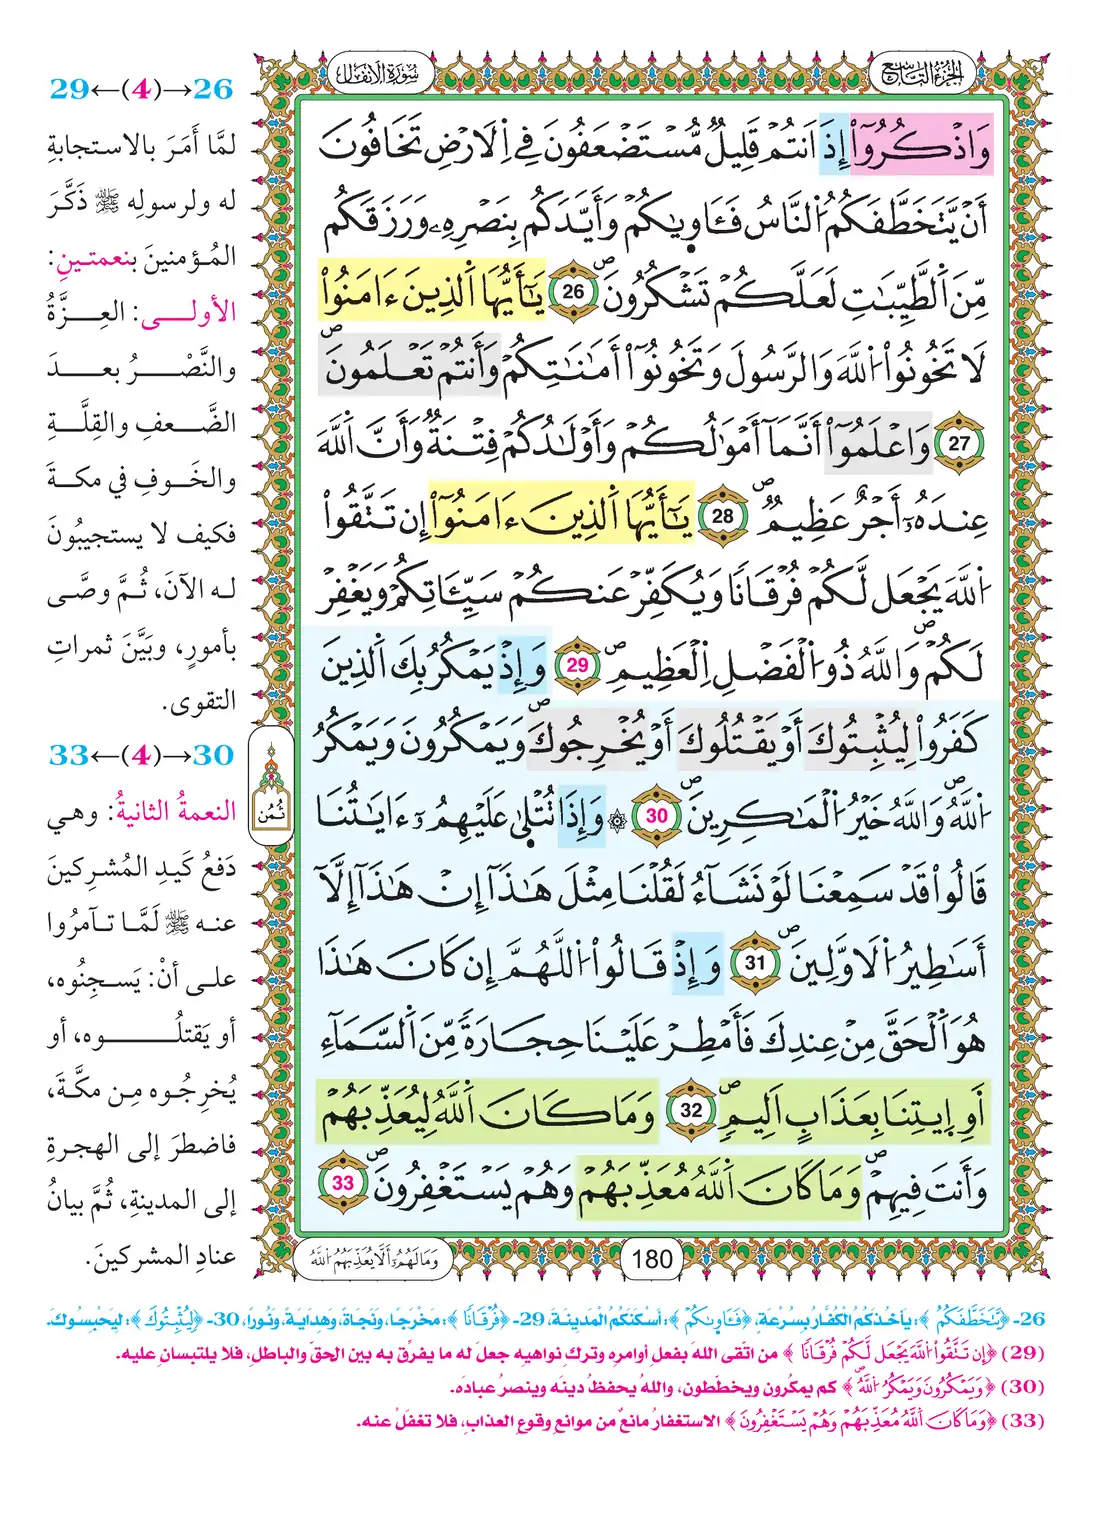 الجزء التاسع
سورة الأنفال
وَاذْكُرُوٓاْ إِذَ اَنتُمْ قَلِيلٌ مُّسْتَضْعَفُونَ فِے اِلَارْضِ تَخَافُونَ
أَنْ يَّتَخَطَّفَكُمُ اُلنَّاسُ فَـَٔاو۪يٰكُمْ وَأَيَّدَكُم بِنَصْرِهِۦ وَرَزَقَكُم
مِّنَ اَلطَّيِّبَٰتِ لَعَلَّكُمْ تَشْكُرُونَۖ 26 يَٰٓأَيُّهَا اَلذِينَ ءَامَنُواْ
لَا تَخُونُواْ اُللَّهَ وَالرَّسُولَ وَتَخُونُوٓاْ أَمَٰنَٰتِكُمْ وَأَنتُمْ تَعْلَمُونَۖ
27 وَاعْلَمُوٓاْ أَنَّمَآ أَمْوَٰلُكُمْ وَأَوْلَٰدُكُمْ فِتْنَةٌ وَأَنَّ اَللَّهَ
عِندَهُۥٓ أَجْرٌ عَظِيمٌۖ 28 يَٰٓأَيُّهَا اَلذِينَ ءَامَنُوٓاْ إِن تَتَّقُواْ
اُللَّهَ يَجْعَل لَّكُمْ فُرْقَانًا وَيُكَفِّرْ عَنكُمْ سَيِّـَٔاتِكُمْ وَيَغْفِرْ
لَكُمْۖ وَاللَّهُ ذُو اُلْفَضْلِ اِلْعَظِيمِۖ 29 وَإِذْ يَمْكُرُ بِكَ اَلذِينَ
كَفَرُواْ لِيُثْبِتُوكَ أَوْ يَقْتُلُوكَ أَوْ يُخْرِجُوكَۖ وَيَمْكُرُونَ وَيَمْكُرُ
اُللَّهُۖ وَاللَّهُ خَيْرُ اُلْمَٰكِرِينَۖ 30 ۞ وَإِذَا تُتْل۪يٰ عَلَيْهِمُۥٓ ءَايَٰتُنَا
قَالُواْ قَدْ سَمِعْنَا لَوْ نَشَآءُ لَقُلْنَا مِثْلَ هَٰذَآ إِنْ هَٰذَآ إِلَّآ
أَسَٰطِيرُ اُلَاوَّلِينَۖ 31 وَإِذْ قَالُواْ اُللَّهُمَّ إِن كَانَ هَٰذَا
هُوَ اَلْحَقَّ مِنْ عِندِكَ فَأَمْطِرْ عَلَيْنَا حِجَارَةً مِّنَ اَلسَّمَآءِ
اَوِ اِيتِنَا بِعَذَابٍ اَلِيمٍۖ 32 وَمَا كَانَ اَللَّهُ لِيُعَذِّبَهُمْ
وَأَنتَ فِيهِمْۖ وَمَا كَانَ اَللَّهُ مُعَذِّبَهُمْ وَهُمْ يَسْتَغْفِرُونَۖ 33
ثُمُن
180
وَمَا لَهُمُۥٓ أَلَّا يُعَذِّبَهُمُ اُللَّهُ
26→(4)←29
لمَّا أَمَرَ بالاستجابةِ
له ولرسولِه ﷺ ذَكَّرَ
المُؤمنينَ بنعمتينِ:
الأولى: العِزَّةُ
والنَّصْرُ بعدَ
الضَّعفِ والقِلَّةِ
والخَوفِ في مكةَ
فكيف لا يستجيبُونَ
له الآنَ، ثُمَّ وصَّى
بأمورٍ، وبَيَّنَ ثمراتِ
التقوى.
30→(4)←33
النعمةُ الثانيةُ: وهي
دَفعُ كَيدِ المُشركينَ
عنه ﷺ لَمَّا تآمرُوا
على أنْ: يَسجِنُوه،
أو يَقتلُوه، أو
يُخرِجُوه مِن مكَّةَ،
فاضطرَ إلى الهجرةِ
إلى المدينةِ، ثُمَّ بيانُ
عنادِ المشركينَ.
26- ﴿يَّتَخَطَّفَكُمُ﴾: يَأخُذَكُمُ الْكُفَّارُ بِسُرْعَةٍ، ﴿فَـَٔاو۪يٰكُمْ﴾: أَسْكَنَكُمُ الْمَدِينَةَ، 29- ﴿فُرْقَانًا﴾: مَخْرَجًا، ونَجَاةً، وهِدَايَةً، ونُوراً، 30- ﴿لِيُثْبِتُوكَ﴾: لِيَحْبِسُوكَ.
(29) ﴿إِن تَتَّقُواْ اُللَّهَ يَجْعَل لَّكُمْ فُرْقَانًا﴾ من اتّقى اللهَ بفعلِ أوامرِه وتركِ نواهيه جعلَ له ما يفرِّقُ به بين الحقِّ والباطلِ، فلا يلتبسانِ عليه.
(30) ﴿وَيَمْكُرُونَ وَيَمْكُرُ اُللَّهُۖ﴾ كم يمكُرون ويخطّطون، واللهُ يحفظُ دينَه وينصرُ عبادَه.
(33) ﴿وَمَا كَانَ اَللَّهُ مُعَذِّبَهُمْ وَهُمْ يَسْتَغْفِرُونَ﴾ الاستغفارُ مانعٌ من موانعِ وقوعِ العذابِ، فلا تغفلْ عنه.